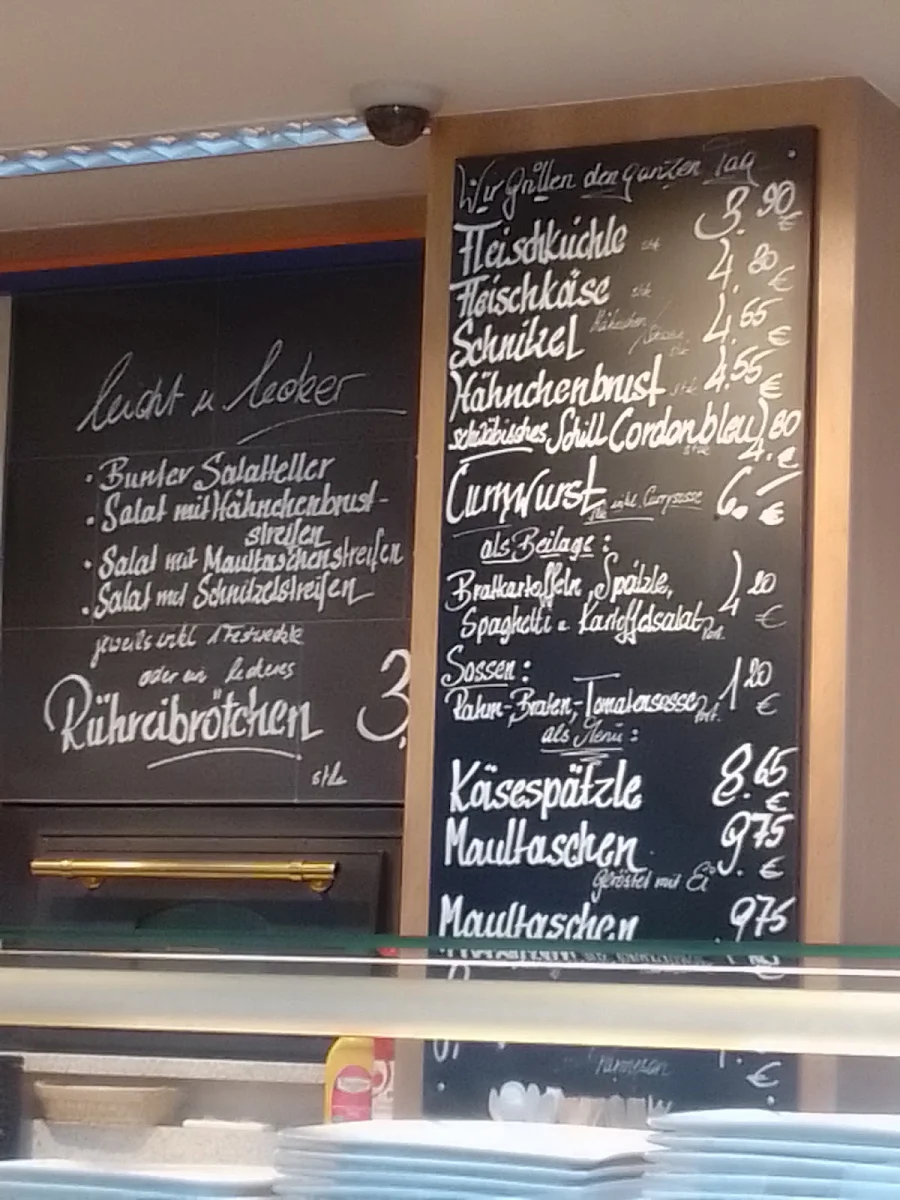 leicht u lecker
· Bunter Salatteller
· Salat mit Hähnchenbrust-
streifen
· Salat mit Maultaschenstreifen
· Salat mit Schnitzelstreifen
jeweils inkl 1
oder ein leckeres
Rühreibrötchen 3,
stk
Wir Grillen den ganzen Tag
Fleischküchle stk 3.90 €
Fleischkäse stk 4.20 €
Schnitzel Hähnchen/ stk 4.65 €
Hähnchenbrust stk 4.55 €
schwäbisches Schill Cordonbleu) stk 4.80 €
Currywurst inkl. Currysosse 6.- €
als Beilage:
Bratkartoffeln, Spätzle,
Spaghetti u Kartoffelsalat Port. 4,20 €
Sossen:
Rahm-, Braten-, Tomatensosse Port. 1,20 €
als Menü:
Käsespätzle 8.65 €
Maultaschen 9.75 €
geröstet mit Ei
Maultaschen 9.75
€
Parmesan
€